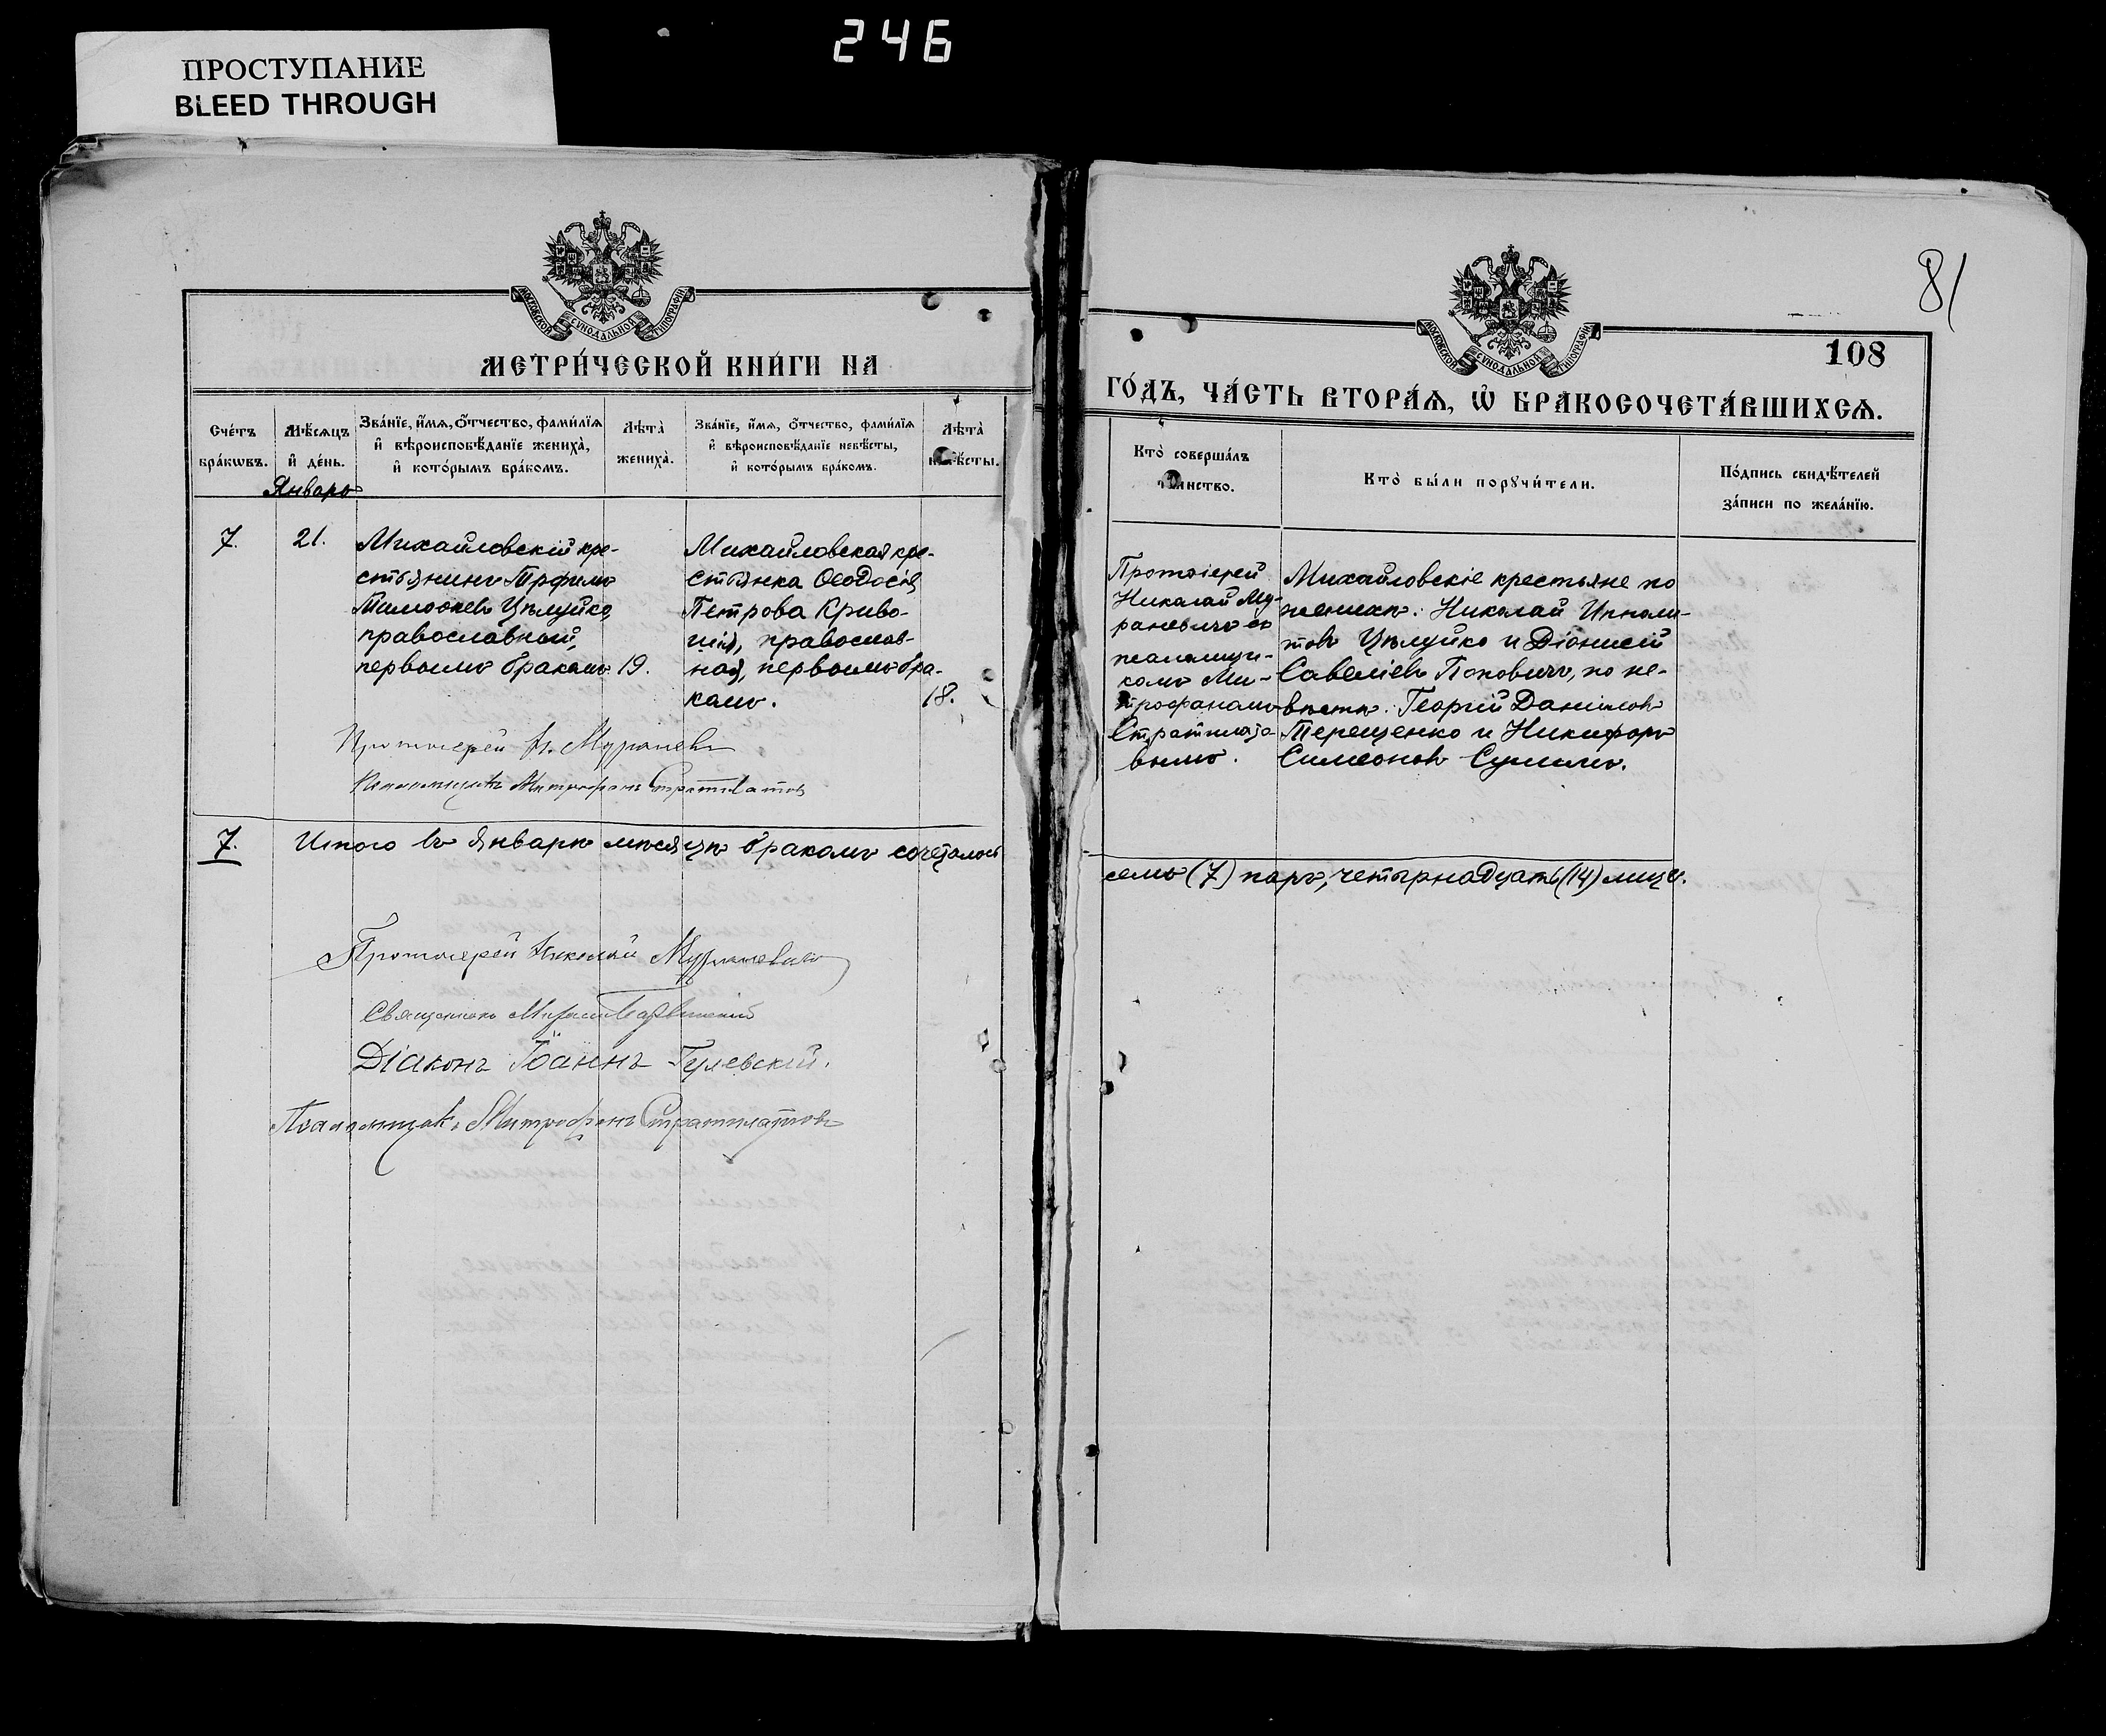 246
ПРОСТУПАНИЕ
BLEED THROUGH
МОСКОВСКОЙ СѴНОДАЛЬНОЙ ТИПОГРАФІИ
МЕТРИ́ЧЕСКОЙ КНИ́ГИ НА
Сче́тъ бра́кѡвъ.
Мѣ́сяцъ и́ де́нь.
Зва́нїе, и́мѧ, ѻ҆́тчество, фами́лїѧ и́ вѣроисповѣ́данїе жениха̀, и́ кото́рымъ бра́комъ.
Лѣ́та̀ жениха̀.
Зва́нїе, и́мѧ, ѻ҆́тчество, фами́лїѧ и́ вѣроисповѣ́данїе невѣ́сты, и́ кото́рымъ бра́комъ.
Лѣ́та̀ невѣ́сты.
Январь
7.
21.
Михайловскій кре-
стьянинъ Трофимъ
Цѣлуйко,
православный,
первымъ бракомъ.
19.
Михайловская кре-
стьянка Ѳеодосія
Петрова Криво-
шія, православ-
ная, первымъ бра-
комъ.
18.
Протоіерей Н. Мураневичъ
Псаломщикъ Митрофанъ Стратилатовъ
7.
Итого въ Январѣ мѣсяцѣ бракомъ сочеталось
Протоіерей Николай Мураневичъ
Священникъ
Діаконъ Іоаннъ Гулевскій.
Псаломщикъ Митрофанъ Стратилатовъ
81
МОСКОВСКОЙ СѴНОДАЛЬНОЙ ТИПОГРАФІИ
108
ГО́ДЪ, ЧА́СТЬ ВТОРА́Ѧ, Ѡ҆ БРАКОСОЧЕТА́ВШИХСѦ.
Кто̀ соверша́лъ таинство.
Кто̀ бы́ли порꙋчи́тели.
По́дпись свидѣ́телей за́писи по жела́нїю.
Протоіерей
Николай Му-
раневичъ съ
псаломщи-
комъ Ми-
трофаномъ
Стратилато-
вымъ.
Михайловскіе крестьяне по
женихѣ: Николай Ипполи-
товъ Цѣлуйко и Діонисій
Савеліевъ Поповичъ, по не-
вѣстѣ: Георгій Даніиловъ
Терещенко и Никифоръ
Симеоновъ
семь (7) паръ, четырнадцать (14) лицъ.